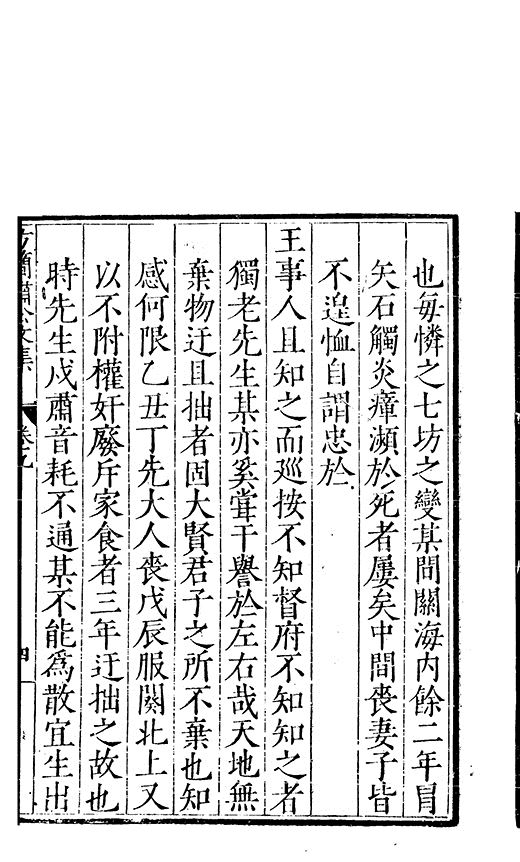 也每憐之七坊之變某間關海內餘二年冒
矢石觸炎瘴瀕於死者屢矣中間喪妻子皆
不遑恤自謂忠於
王事人且知之而巡按不知督府不知知之者
獨老先生某亦奚嘗干譽於左右哉天地無
棄物迂且拙者固大賢君子之所不棄也知
感何限乙丑丁先大人喪戊辰服闋北上又
以不附權奸廢斥家食者三年迂拙之故也
時先生戍肅音耗不通某不能爲散宜生出
簡肅公文集
卷九
四